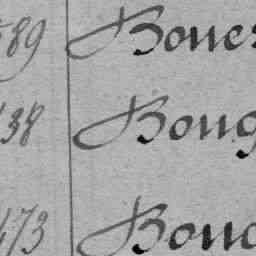 89 Boues
38 Boug
473 Bouc